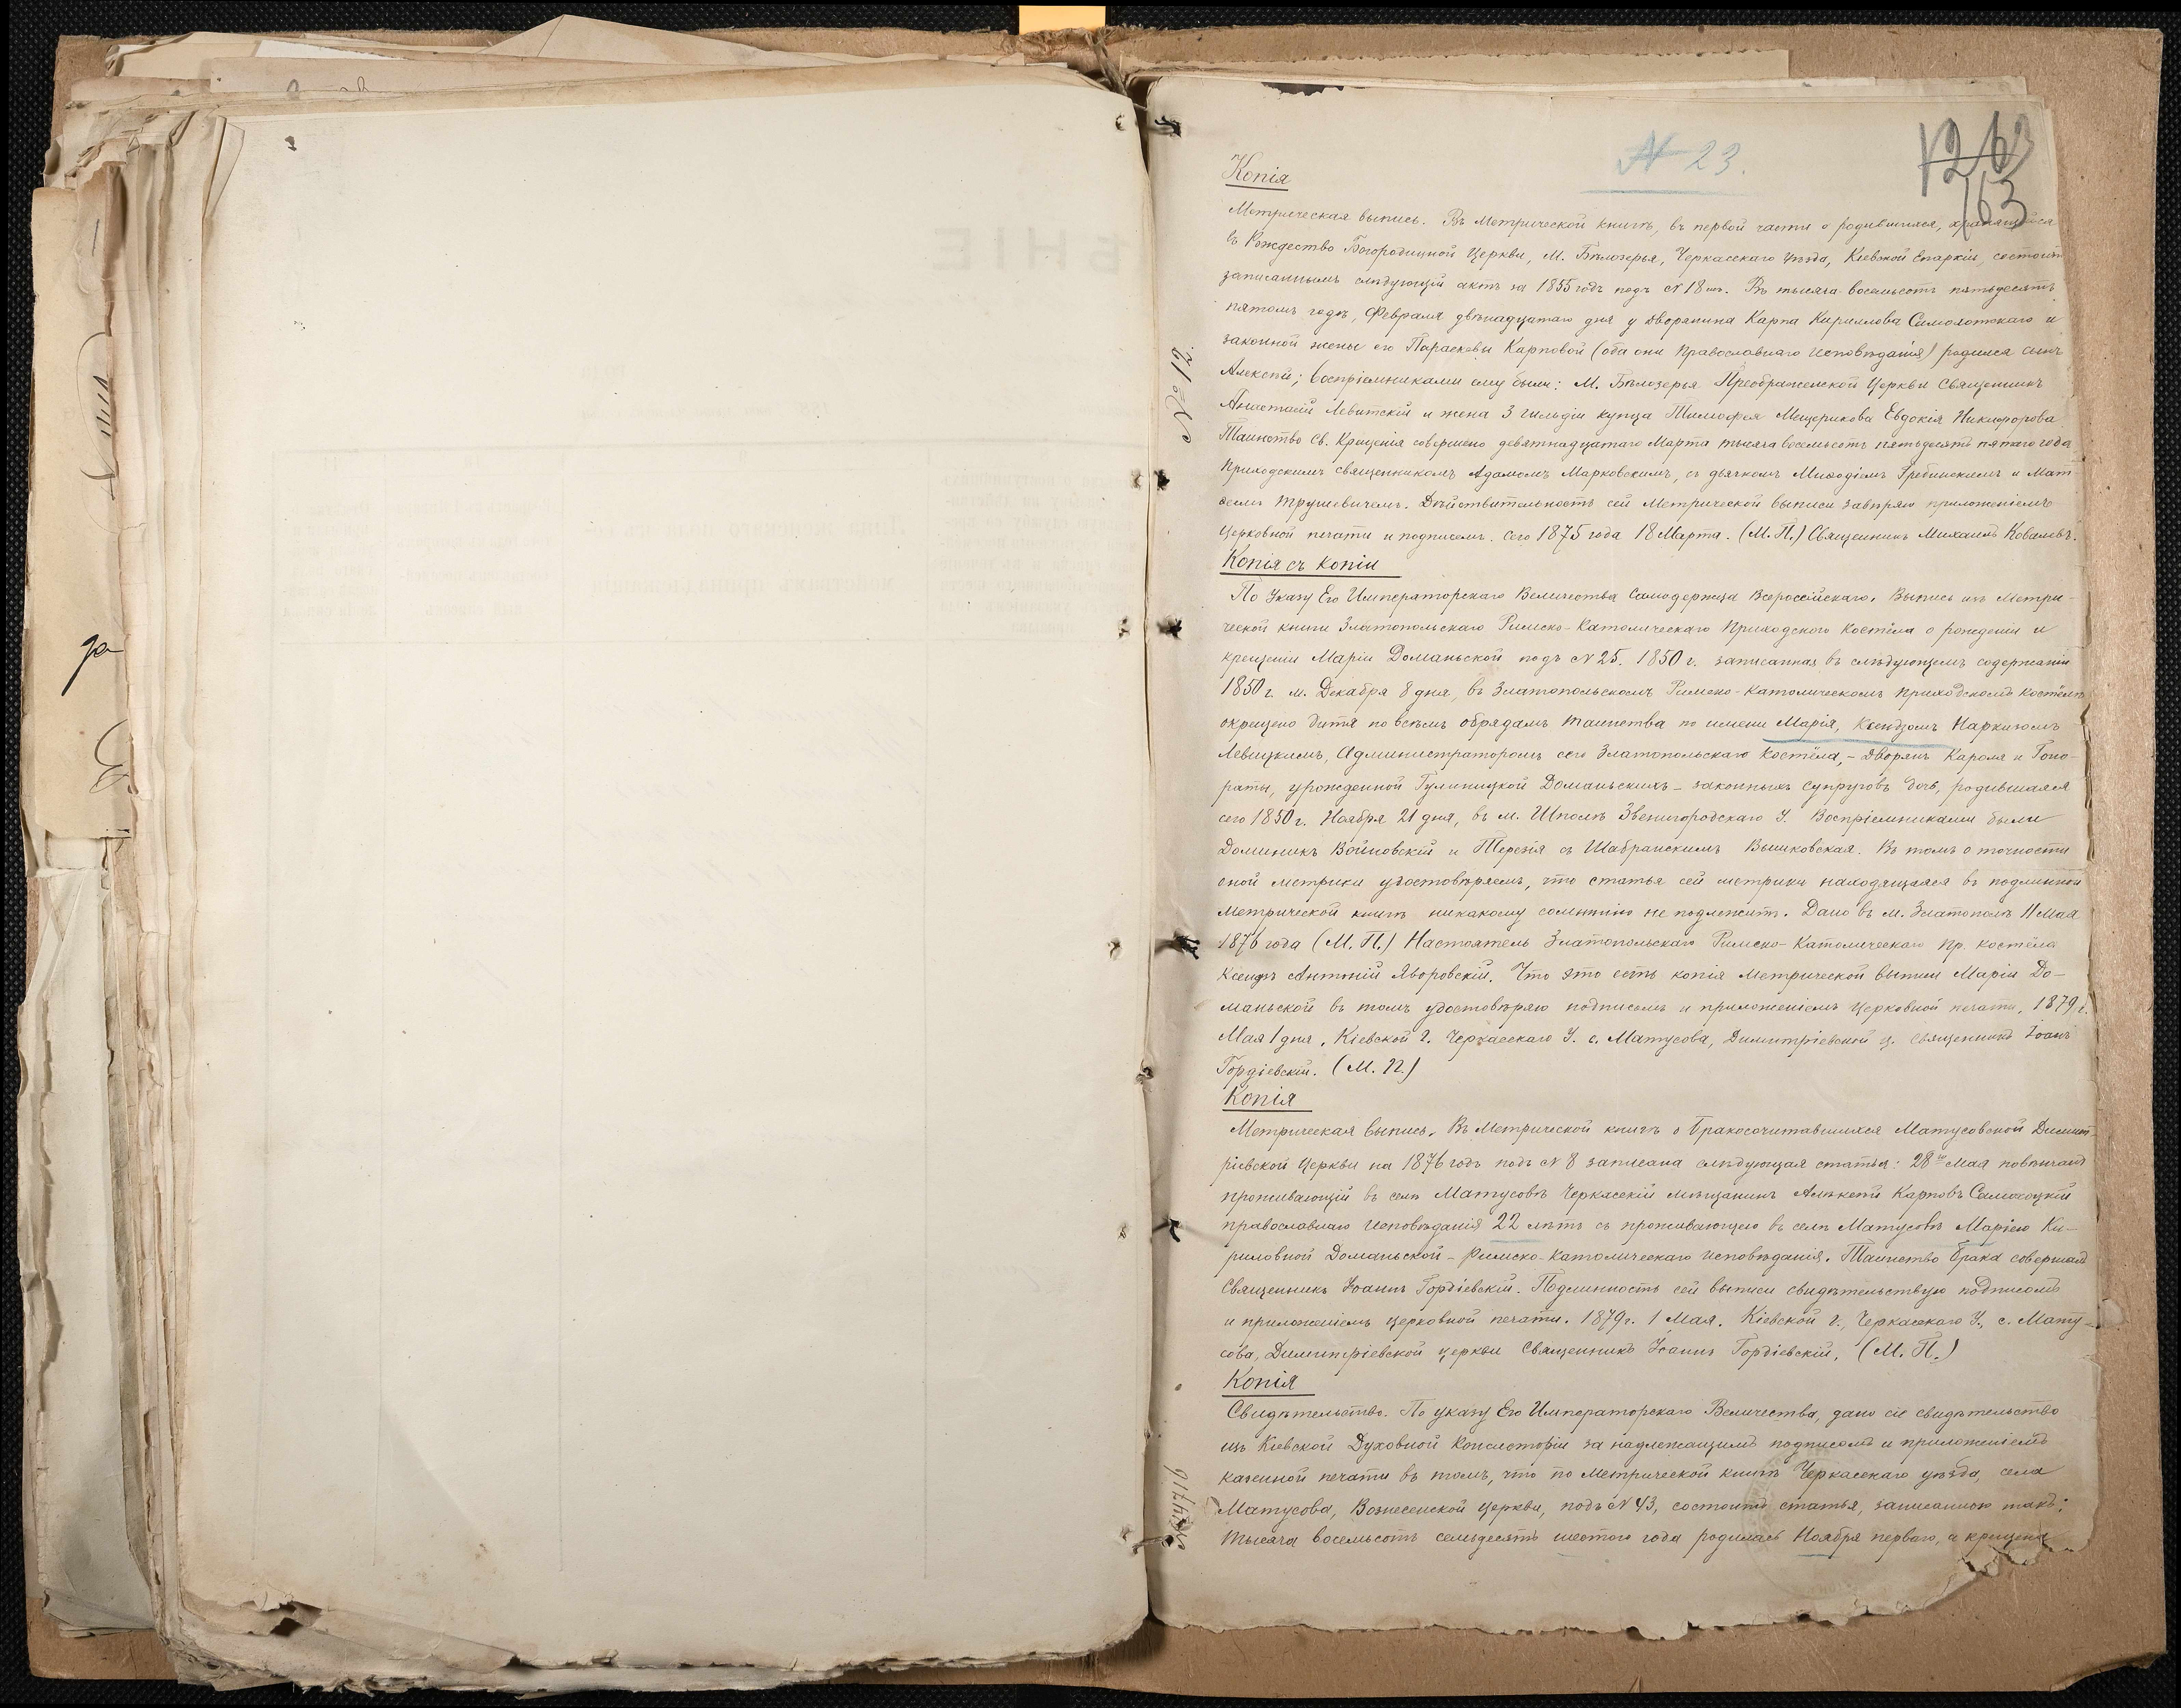 № 23.
63
Копія
Метрическая выпись. Въ Метрической книгѣ, въ первой части о родившихся, хранящейся
въ Рождество Богородицкой Церкви, М. Бѣлозерья, Черкасскаго уѣзда, Кіевской Епархіи, состоитъ
записаннымъ слѣдующій актъ за 1855 годъ подъ № 18мъ. Въ тысяча восемьсотъ пятьдесятъ
пятомъ годѣ, Февраля двѣнадцатаго дня у дворянина Карпа Кириллова Самолотскаго и
законной жены его Параскевы Карповой (оба они Православнаго исповѣданія) родился сынъ
Алексѣй; воспріемниками ему были: М. Бѣлозерья Преображенской Церкви Священникъ
Анастасій Левитскій и жена 3 гильдіи купца Тимофея Мещерикова Евдокія Никифорова
Таинство Св. Крещенія совершено девятнадцатаго Марта тысяча восемьсотъ пятьдесятъ пятаго года
Приходскимъ священникомъ Адамомъ Марковскимъ, съ дьячкомъ Миѳодіемъ Гребинскимъ и Мат-
ѳеемъ Трушевичемъ. Дѣйствительность сей Метрической выписи завѣряю приложеніемъ
Церковной печати и подписомъ. Сего 1875 года 18 Марта. (М. П.) Священникъ Михаилъ Ковалевъ.
№ 12.
Копія съ копіи
По Указу Его Императорскаго Величества Самодержца Всероссійскаго. Выпись изъ Метри-
ческой книги Златопольскаго Римско-Католическаго Приходского Костёла о рожденіи и
крещеніи Маріи Доманьской подъ № 25. 1850 г. записанная въ слѣдующемъ содержаніи
1850 г. М. Декабря 8 дня, въ Златопольскомъ Римско-Католическомъ приходскомъ костёлѣ
окрещено дитя по всѣмъ обрядамъ таинства по имени Марія, Ксендзомъ Наркизомъ
Левицкимъ, Администраторомъ сего Златопольскаго Костёла,- дворянъ Кароля и Гоно-
раты, урожденной Гулиницкой Доманьскихъ - законныхъ супруговъ дочь, родившаяся
сего 1850 г. Ноября 21 дня, въ м. Шполѣ Звенигородскаго У. Воспріемниками были
Доминикъ Войновскій и Терезія съ Шабранскимъ Вышковская. Въ томъ о точности
оной метрики удостовѣряемъ, что статья сей метрики находящаяся въ подлинной
Метрической книгѣ никакому сомнѣнію не подлежитъ. Дано въ м. Златополѣ 11 Мая
1876 года (М. П.) Настоятель Златопольскаго Римско-Католическаго пр. костёла
Ксендзъ Антоній Яворовскій. Что это есть копія Метрической выписи Маріи До-
маньской въ томъ удостовѣряю подписомъ и приложеніемъ Церковной печати, 1879 г.
Мая 1 дня, Кіевской г. Черкасскаго У. с. Матусова, Димитріевской ц. Священникъ Іоанъ
Гордіевскій. (М. П.)
Копія
Метрическая выпись. Въ Метрической книгѣ о бракосочитавшихся Матусовской Димит-
ріевской Церкви на 1876 годъ подъ № 8 записана слѣдующая статья: 28го Мая повѣнчанъ
проживающій въ селѣ Матусовѣ Черкасскій мѣщанинъ Алексѣй Карповъ Самолоцкій
православнаго исповѣданія 22 лѣтъ съ проживающею въ селѣ Матусовѣ Маріею Ки-
риловной Доманьской - Римско-Католическаго исповѣданія. Таинство брака совершалъ
Священникъ Іоаннъ Гордіевскій. Подлинность сей выписи свидѣтельствую подписомъ
и приложеніемъ церковной печати. 1879 г. 1 Мая. Кіевской г., Черкасскаго У., с. Мату-
сова, Димитріевской церкви Священникъ Іоаннъ Гордіевскій. (М. П.)
Копія
Свидѣтельство. По указу Его Императорскаго Величества, дано сіе свидѣтельство
изъ Кіевской Духовной Консисторіи за надлежащимъ подписомъ и приложеніемъ
казенной печати въ томъ, что по Метрической книгѣ Черкасскаго уѣзда, села
Матусова, Вознесенской Церкви, подъ № 43, состоитъ статья, записанною такъ:
Тысяча восемьсотъ семьдесятъ шестого года родилась Ноября перваго, а крещена